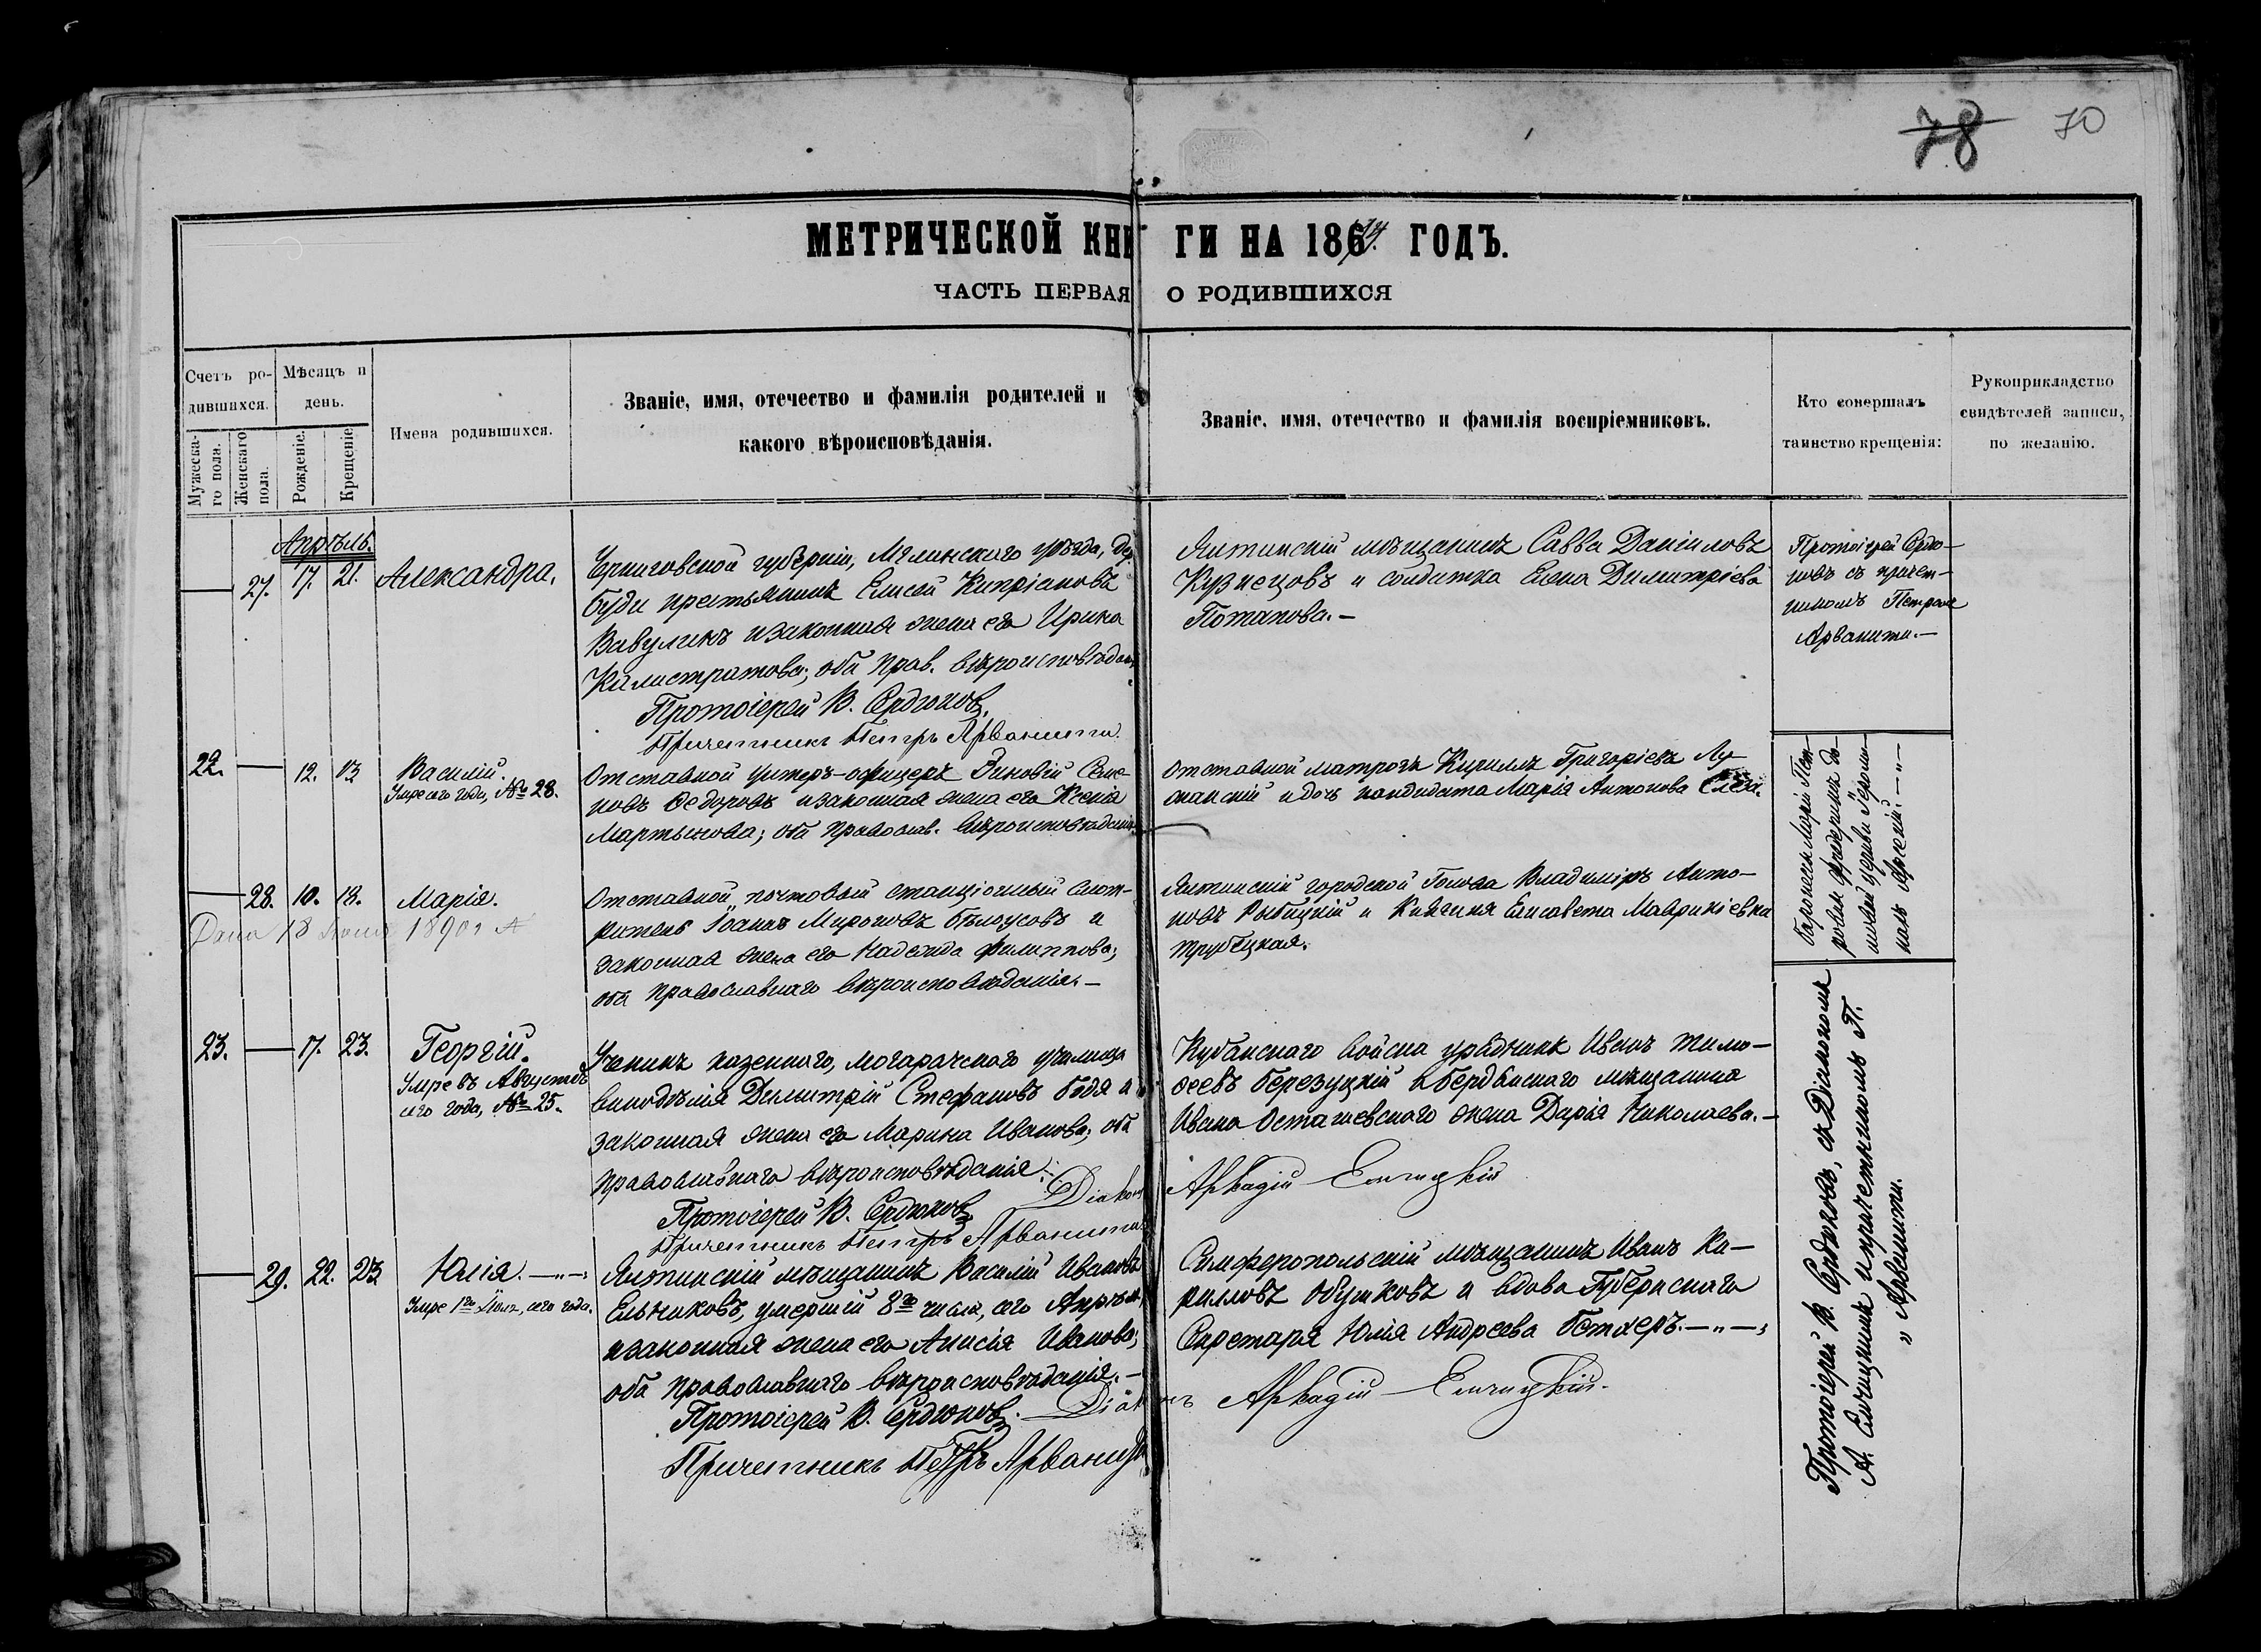 78 70
МЕТРИЧЕСКОЙ КНИГИ НА 1874 ГОДЪ.
ЧАСТЬ ПЕРВАЯ О РОДИВШИХСЯ
Счетъ ро-
дившихся.
Мужеска-
го пола.
Женскаго
пола.
Мѣсяцъ и
день.
Рожденіе.
Крещеніе.
Имена родившихся.
Званіе, имя, отечество и фамилія родителей и
какого вѣроисповѣданія.
Званіе, имя, отечество и фамилія воспріемниковъ.
Кто совершалъ
таинство крещенія:
Рукоприкладство
свидѣтелей записи,
по желанію.
Апрѣль.
— 27. 17. 21. Александра.
Черниговской губерніи, Мглинскаго уѣзда,
буди крестьянинъ Елисей Кипріановъ
Вавулинъ и законная жена его Ирина
Калистратова; оба прав. вѣроисповѣдан.
Протоіерей В. Сердюковъ.
Причетникъ Петръ Арванити.
Ялтинскій мѣщанинъ Савва Даніиловъ
Кузнецовъ и солдатка Елена Димитріева
Потапова.—
Протоіерей Сердю-
ковъ съ причет-
никомъ Петромъ
Арванити.—
22. — 12. 13 Василій.
Умре сего года, № 28.
Отставной унтеръ-офицеръ Зиновій Семе-
новъ Ѳедоровъ и законная жена его Ксенія
Мартынова; оба православ. вѣроисповѣданія
Отставной матросъ Кириллъ Григоріевъ Лу-
жанскій и дочь кандидата Марія Антонова
— 28. 10. 18. Марія.
Дана 18 1890 г
Отставной почтовый станціонный смот-
ритель Іоаннъ Мироновъ Бѣлоусовъ и
законная жена его Надежда Филиппова;
оба православнаго вѣроисповѣданія.—
Ялтинскій городской Голова Владиміръ Анто-
новъ Рыбицкій и Княгиня Елисавета Маврикіевна
Трубецкая.
23. — 17. 23. Георгій.
Умре въ Августѣ
сего года, № 25.
Ученикъ казеннаго, Могарачскаго училища
винодѣлія Димитрій Стефановъ Бодя и
законная жена его Марина Иванова; оба
православнаго вѣроисповѣданія.
Протоіерей В. Сердюковъ
Діаконъ Аркадій Ельчицкій
Причетникъ Петръ Арванити
Кубанскаго войска урядникъ Иванъ Тимо-
ѳеевъ Березуцкій и бердянскаго мѣщанина
Ивана Осташевскаго жена Дарія Николаева.—
— 29. 22. 23 Юлія.—„—
Умре 1го Іюля, сего года.
Ялтинскій мѣщанинъ Василій Ивановъ
Ельниковъ, умершій 8го числа, сего Апрѣля
и законная жена его Анисія Иванова;
оба православнаго вѣроисповѣданія.—
Протоіерей В. Сердюковъ.
Діаконъ Аркадій Ельчицкій.
Причетникъ Петръ Арванити
Симферопольскій мѣщанинъ Иванъ Ки-
рилловъ Обушковъ и вдова Губернскаго
Секретаря Юлія Андреева Бетхеръ.—„—
Протоіерей В. Сердюковъ, съ Діакономъ
А. Ельчицкимъ и причетникомъ П.
„ Арванити.